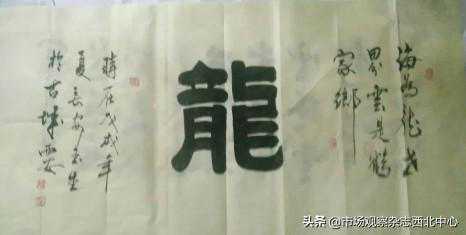 海為龍世
界雲是鶴
家鄉
龍
時在戊戌年
夏長安玉生
於古城西安
头条 @市场观察杂志西北中心